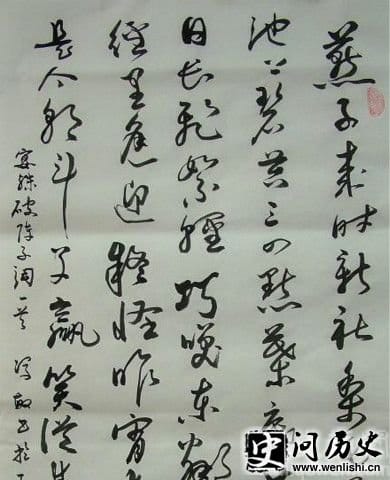 燕子来时新社梨
池上碧苔三四點葉底
日长飛絮輕巧笑东鄰
径里逢迎疑怪昨宵
是今朝斗草赢笑从双
晏殊破阵子词一首
史 问历史
www.wenlishi.cn